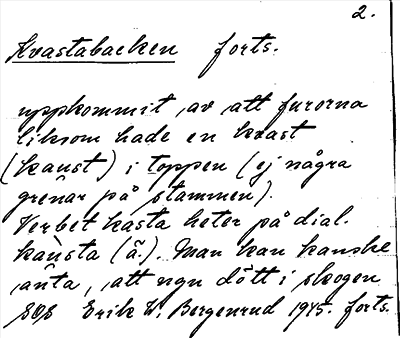 2.
Kvastabacken forts.
uppkommit av att furorna
liksom hade en kvast
(kaust) i toppen (ej några
grenar på stammen).
Verbet kasta heter på dial.
kånsta (ã). Man kan kanske
anta, att ngn dött i skogen
SOS Erik W. Bergenrud 1945. forts.